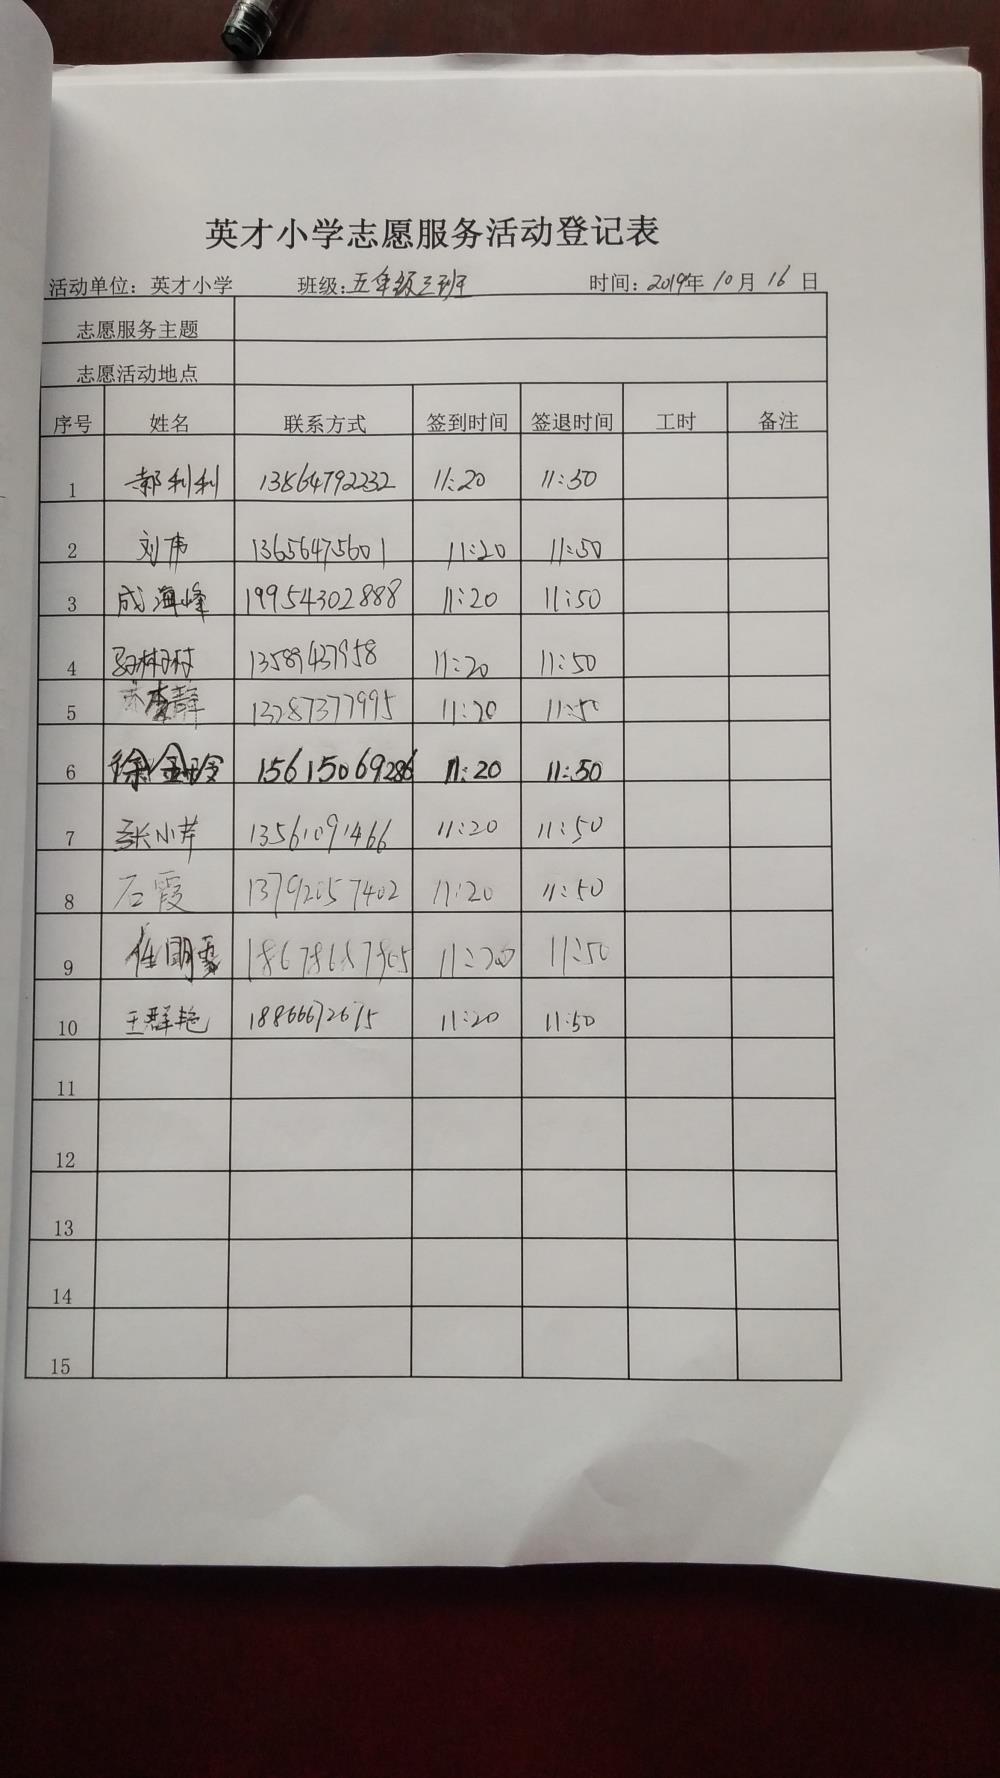 英才小学志愿服务活动登记表
活动单位：英才小学 班级：五年级三班 时间：2019年10月16日
志愿服务主题
志愿活动地点
序号 姓名 联系方式 签到时间 签退时间 工时 备注
1 郝利利 13864792232 11:20 11:50
2 刘伟 13656475601 11:20 11:50
3 成海峰 19954302888 11:20 11:50
4 13589437958 11:20 11:50
5 13287377995 11:20 11:50
6 徐金玲 15615069286 11:20 11:50
7 张小芹 13561091466 11:20 11:50
8 石霞 13792057402 11:20 11:50
9 18678687805 11:20 11:50
10 王群艳 18866672615 11:20 11:50
11
12
13
14
15